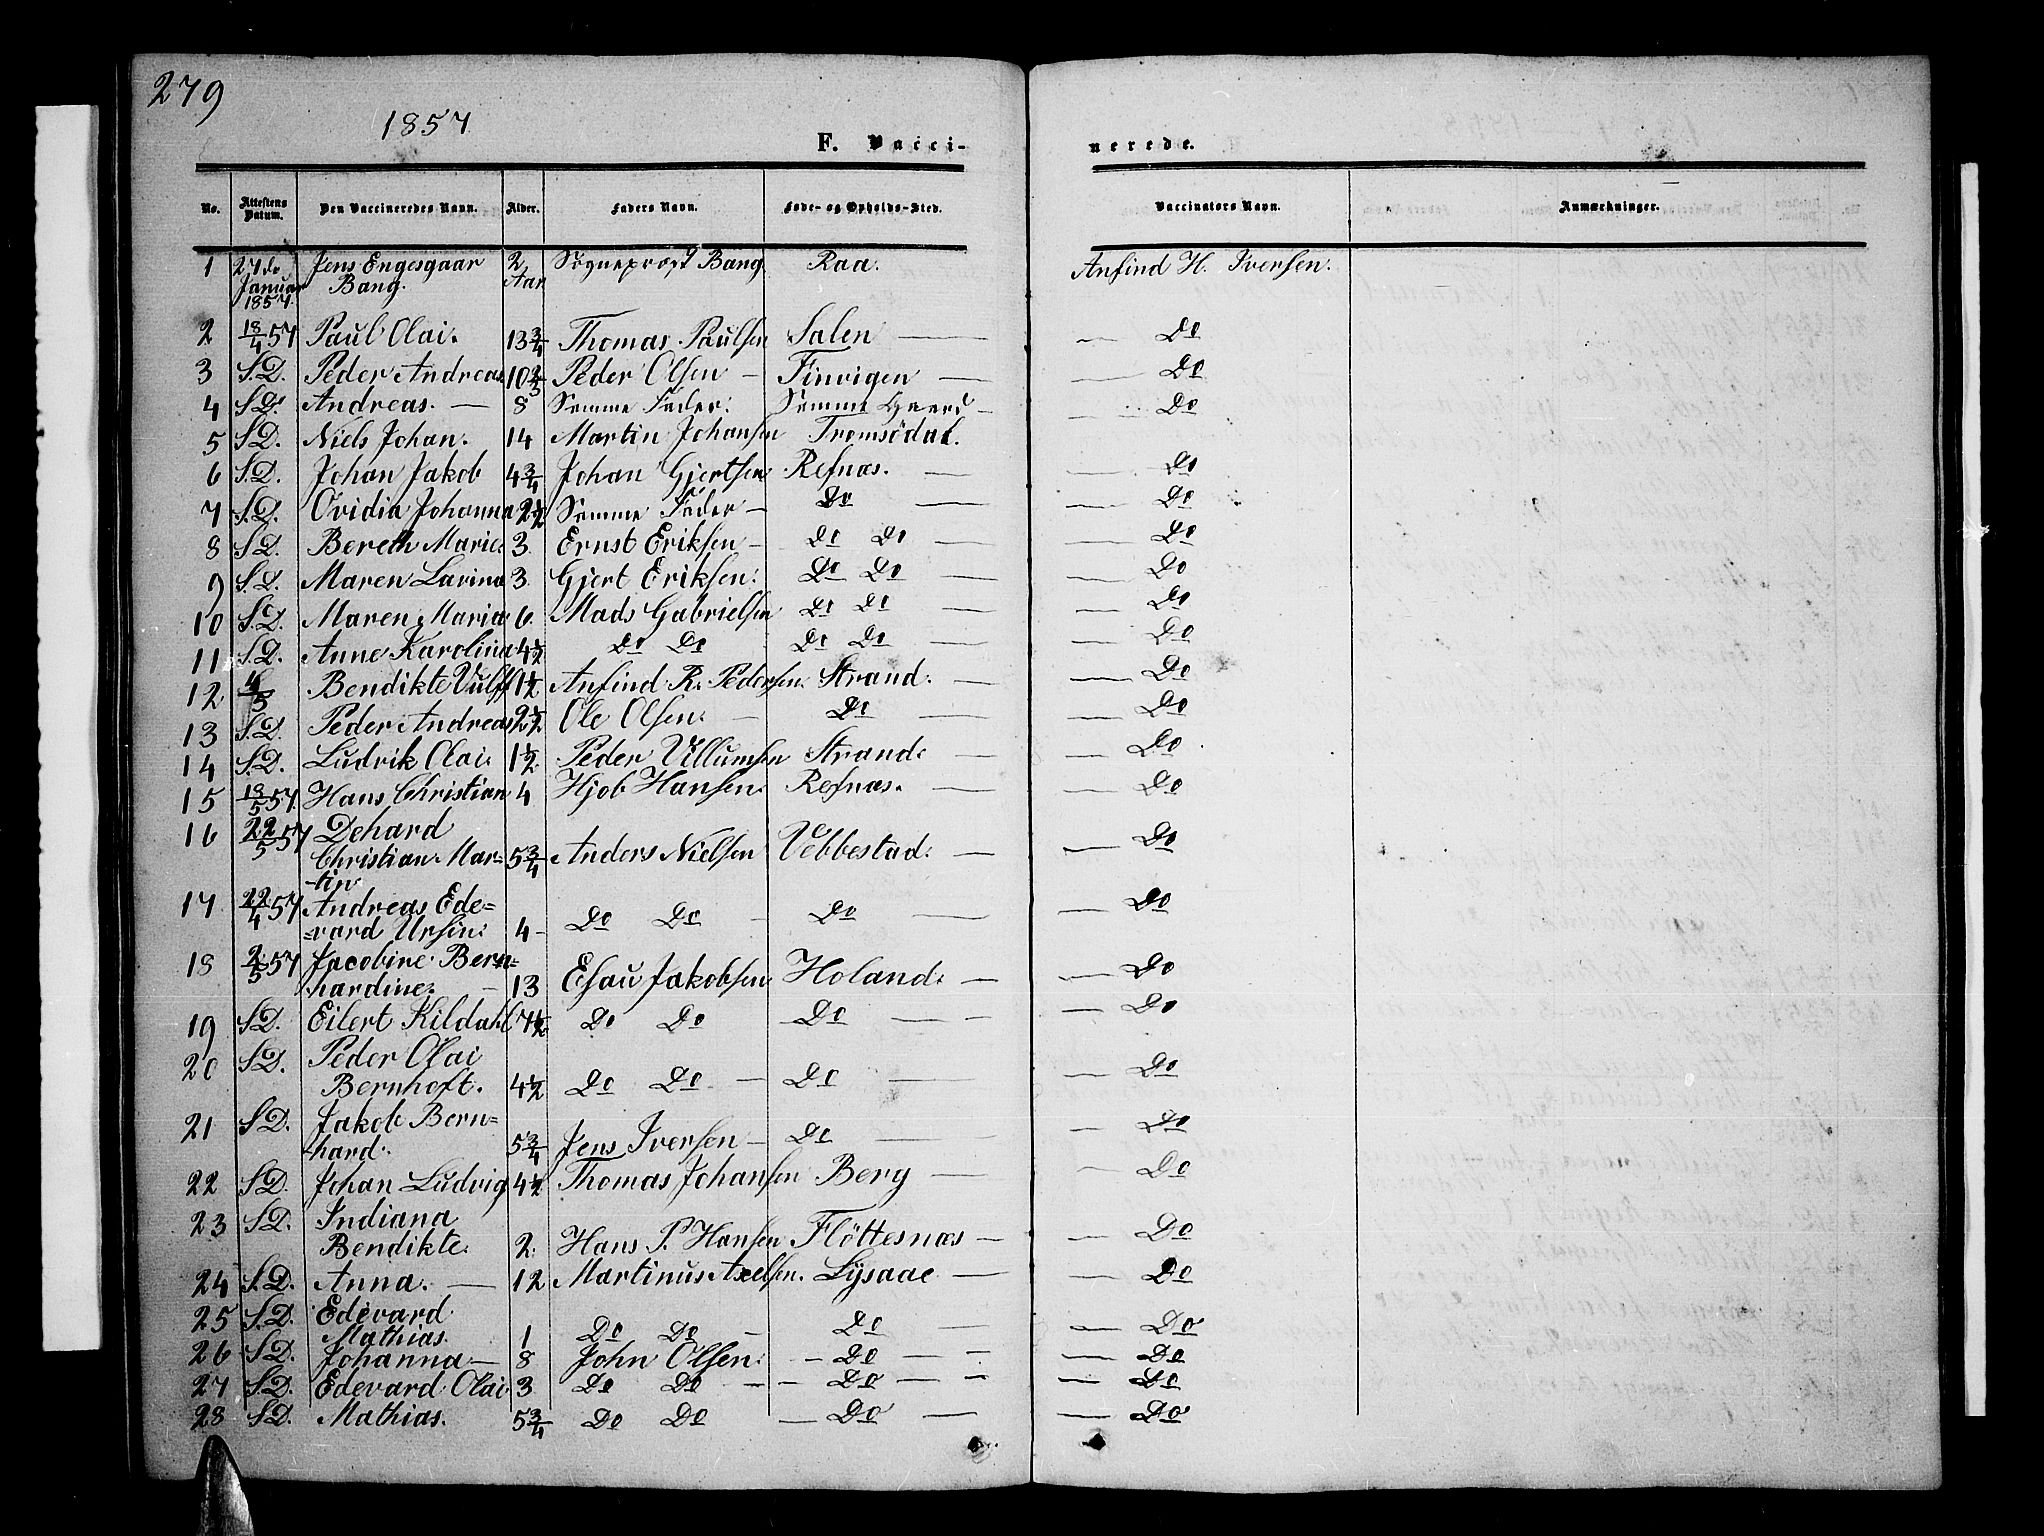 279
1857
F. Vacci-
nerede.
No. Attestens Datum. Den Vaccineredes Navn. Alder. Faders Navn. Føde- og Opholds-Sted. Vaccinators Navn. Anmærkninger.
1 27de Januar 1857. Jens Engesgaar Bang. 2 Aar Sogneprost Bang Raa. Anfind H. Iversen.
2 18/4 57 Paul Olai. 13 3/4 Thomas Paulsen Salen — — Do
3 S.D. Peder Andreas 10 2/3 Peder Olsen — Finvigen — — Do
4 S.D. Andreas. — 8 Samme Fader. Samme Gaard — — Do
5 S.D. Niels Johan. 14 Martin Johansen Tromsödal.
6 S.D. Johan Jakob 4 3/4 Johan Gjertsen Refnæs. — — Do
7 S.D. Ovidia Johanna 2 1/2 Samme Fader — Do — — Do
8 S.D. Bereth Marie. 3. Ernst Eriksen — Do Do — — Do
9 S.D. Maren Lavina 3. Gjert Eriksen. Do Do — — Do
10 S.D. Maren Maria 6. Mads Gabrielsen Do Do — — Do
11 S.D. Anne Karolina 4 1/2 Do Do Do Do — — Do
12 4/5 Bendikte Vulff 1 1/2 Anfind R. Pedersen. Strand. — — Do
13 S.D. Peder Andreas 2 1/2 Ole Olsen. — Do — — Do
14 S.D. Ludvik Olai. 1 1/2 Peder Villumsen Strand. — — Do
15 18/5 57. Hans Christian 4 Hjob Hansen. Refnæs. — — Do
16 22/5 57 Dehard
Christian Mar- 5 3/4 Anders Nielsen Vebbestad. — — Do
-tin.
17 22/4 57 Andreas Ede=
=vard Ursin. 4 — Do Do — Do — — Do
18 2/5 57 Jacobine Bern=
hardine. — 13 Esau Jakobsen Holand. — — Do
19 S.D. Eilert Kildahl 7 1/2 Do Do — Do — — — Do
20 S.D. Peder Olai
Bernhoft. 4 1/2 Do Do — Do — — Do
21 S.D. Jakob Bern=
hard. 5 3/4 Jens Iversen — Do — — Do
22 S.D. Johan Ludvig 4 1/2 Thomas Johansen Berg — — Do
23 S.D. Indiana
Bendikte. 2. Hans P. Hansen Flöttesnæs — — Do
24 S.D. Anna. — 12 Martinus Axelsen. Lysaae — — Do
25 S.D. Edevard
Mathias. 1 Do Do — Do — — Do
26 S.D. Johanna — 8 John Olsen. — Do — - — Do
27 S.D. Edevard Olai. 3 Do Do — — Do — - — Do
28 S.D. Mathias. 5 3/4 Do Do — Do — — Do